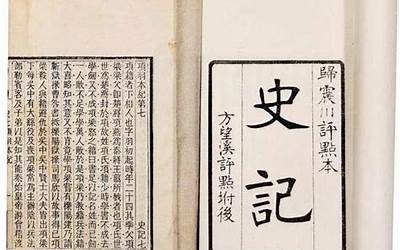 歸震川評點本
史記
方望溪評點坿後
項羽本紀第七
史記七
項籍者下相人也字羽初起時年二十四其季父項
梁梁父卽楚將項燕爲秦將王翦所戮者也項氏世
世爲楚將封於項故姓項氏項籍少時學書不成去
學劍又不成項梁怒之籍曰書足以記名姓而已劍
一人敵不足學學萬人敵於是項梁乃教籍兵法籍
大喜略知其意又不肯竟學項梁嘗有櫟陽逮乃請
蘄獄掾曹咎書抵櫟陽獄掾司馬欣以故事得已項
梁殺人與籍避仇於吳中吳中賢士大夫皆出項梁
下每吳中有大繇役及喪項梁常爲主辦陰以兵法
部勒賓客及子弟以是知其能秦始皇帝游會稽渡